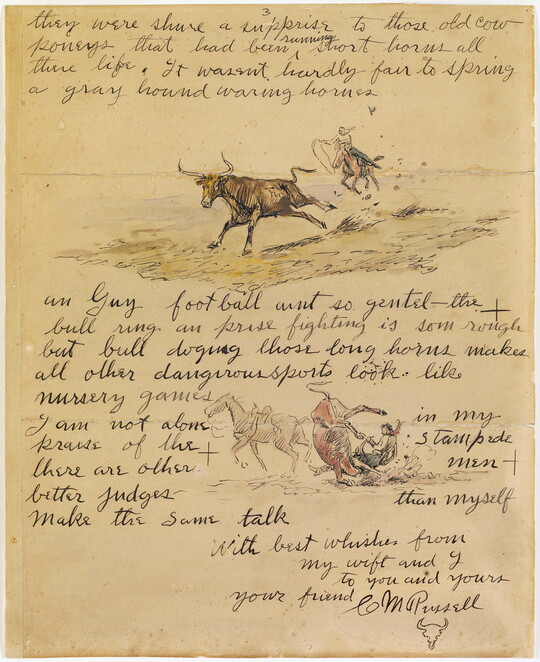 3
they were shure a supprise to those old cow
poneys that had been running short horns all
there life. It wasent hardly fair to spring
a gray hound waring hornes
an Guy football aint so gentel—the +
bull ring an prise fighting is som rough
but bull doging those long horns makes
all other dangerous sports look like
nursery games
I am not alone in my
praise of the + stampede
there are other men +
better judges than myself
Make the same talk
With best whishes from
my wift and I
to you and yours
your friend CMRussell